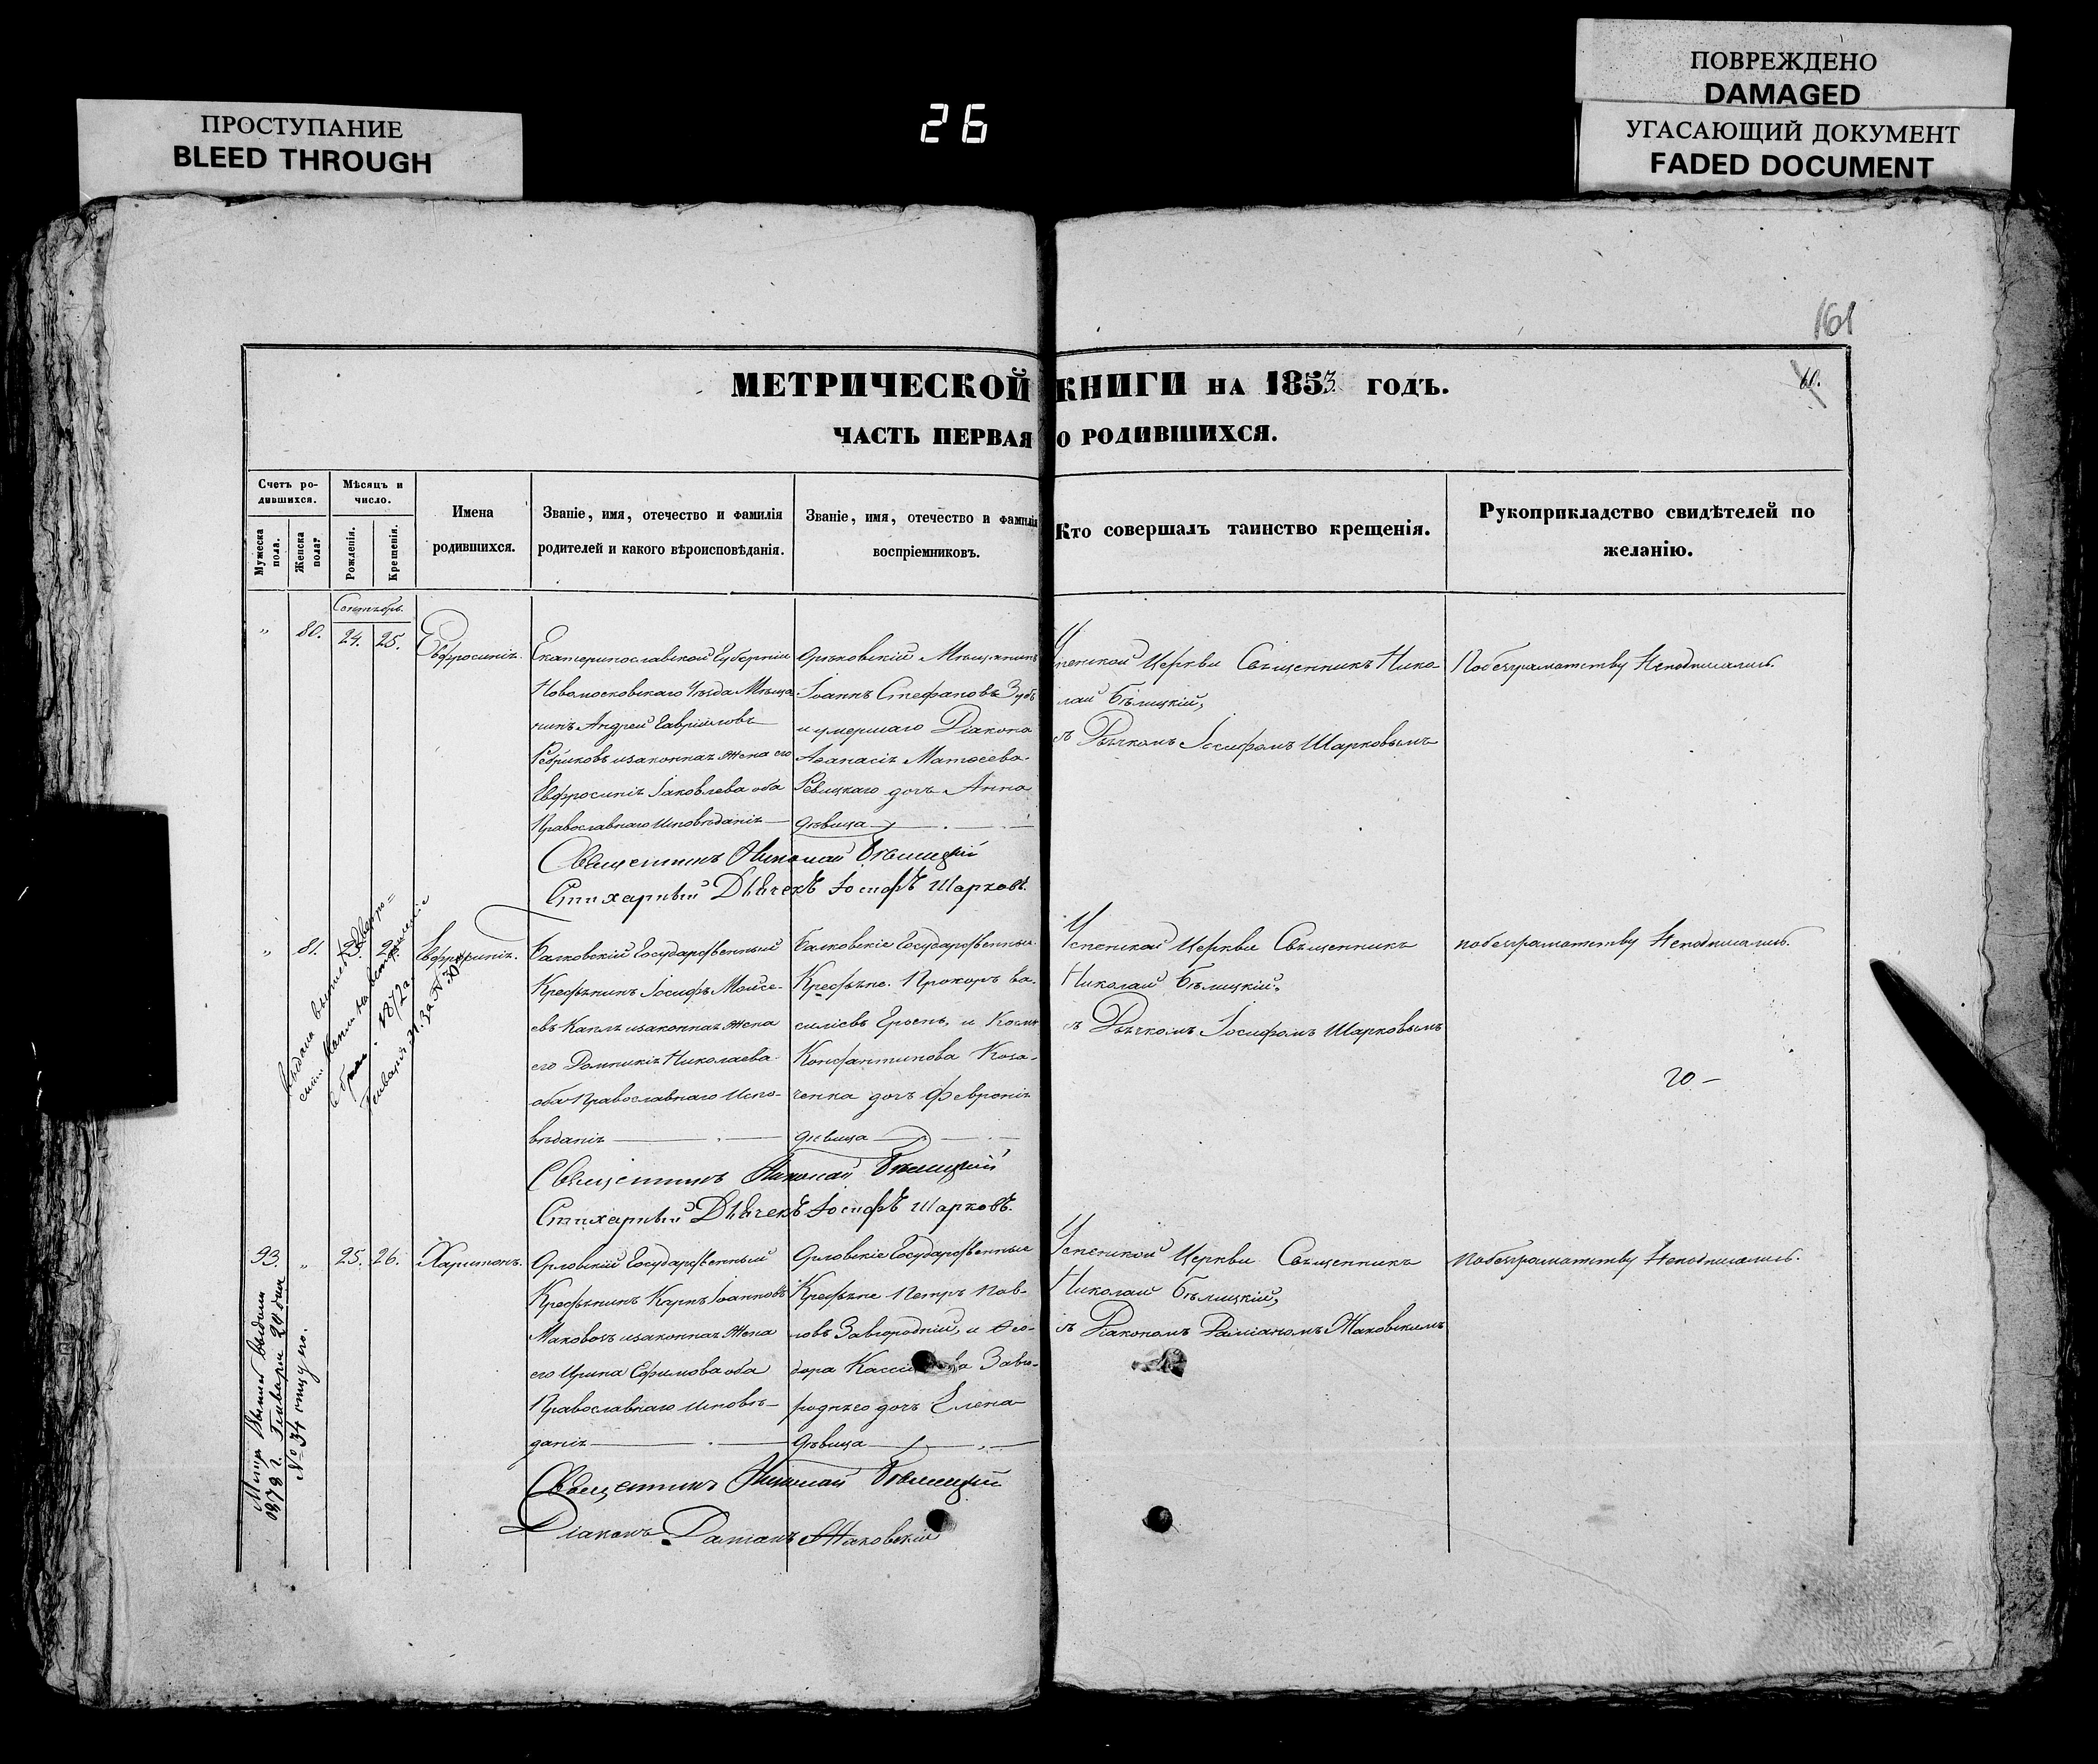 ПРОСТУПАНИЕ
BLEED THROUGH
26
ПОВРЕЖДЕНО
DAMAGED
УГАСАЮЩИЙ ДОКУМЕНТ
FADED DOCUMENT
161
60.
МЕТРИЧЕСКОЙ КНИГИ НА 1853 ГОДЪ.
ЧАСТЬ ПЕРВАЯ О РОДИВШИХСЯ.
Счетъ ро-
дившихся.
Мужеска
пола.
Женска
пола?
Мѣсяцъ и
число.
Рожденія.
Крещенія.
Имена
родившихся.
Званіе, имя, отечество и фамилія
родителей и какого вѣроисповѣданія.
Званіе, имя, отечество и фамилія
воспріемниковъ.
Кто совершалъ таинство крещенія.
Рукоприкладство свидѣтелей по
желанію.
Сентябрь.
" 80. 24. 25. Евфросинія.
Екатеринославской Губерніи
Новомосковскаго Уѣзда Мѣща-
нинъ Андрей Гавріиловъ
и законная жена его
Евфросинія Іаковлева оба
Православнаго Исповѣданія
Орѣховскій Мѣщанинъ
Іоаннъ Стефановъ Зубъ
и умершаго Діакона
Аѳанасія Матѳеева
Левицкаго дочь Анна
дѣвица
Успенской Церкви Священникъ Нико-
лай Бѣлицкій,
съ Дьячкомъ Іосифомъ Шарковымъ
Побезграматству Неподписались.
Священникъ Николай Бѣлицкій
Стихарный Дьячекъ Іосифъ Шарковъ.
" 81. 23. 2 Евфросинія.
Балковскій Государственный
Крестьянинъ Іосифъ Моисе-
евъ и законная жена
его Домникія Николаева
оба Православнаго Испо-
вѣданія
Балковскіе Государственные
Крестьяне. Прокопъ Ва-
силіевъ и
Константинова Коза-
ченка дочь Февронія
дѣвица
Успенской Церкви Священникъ
Николай Бѣлицкій.
съ Дьячкомъ Іосифомъ Шарковымъ
побезграматству Неподписались.
20 –
1872
Генваря 31. за № 30
Священникъ Николай Бѣлицкій
Стихарный Дьячекъ Іосифъ Шарковъ.
93. " 25. 26. Харитонъ.
Орловскій Государственный
Крестьянинъ Киръ Іоанновъ
и законная жена
его Ирина Ефимова оба
Православнаго Исповѣ-
данія
Орловскіе Государственные
Крестьяне Петръ Пав-
ловъ Завгородній, и Ѳео-
дора Завго-
родняго дочь Елена
дѣвица
Успенской Церкви Священникъ
Николай Бѣлицкій,
съ Діакономъ Даміаномъ Жаковскимъ
Побезграматству Неподписались.
Метр. Выпись выдана
1878 г. Генваря 24 дня
№ 34 отцу его.
Священникъ Николай Бѣлицкій
Діаконъ Даміанъ Жаковскій